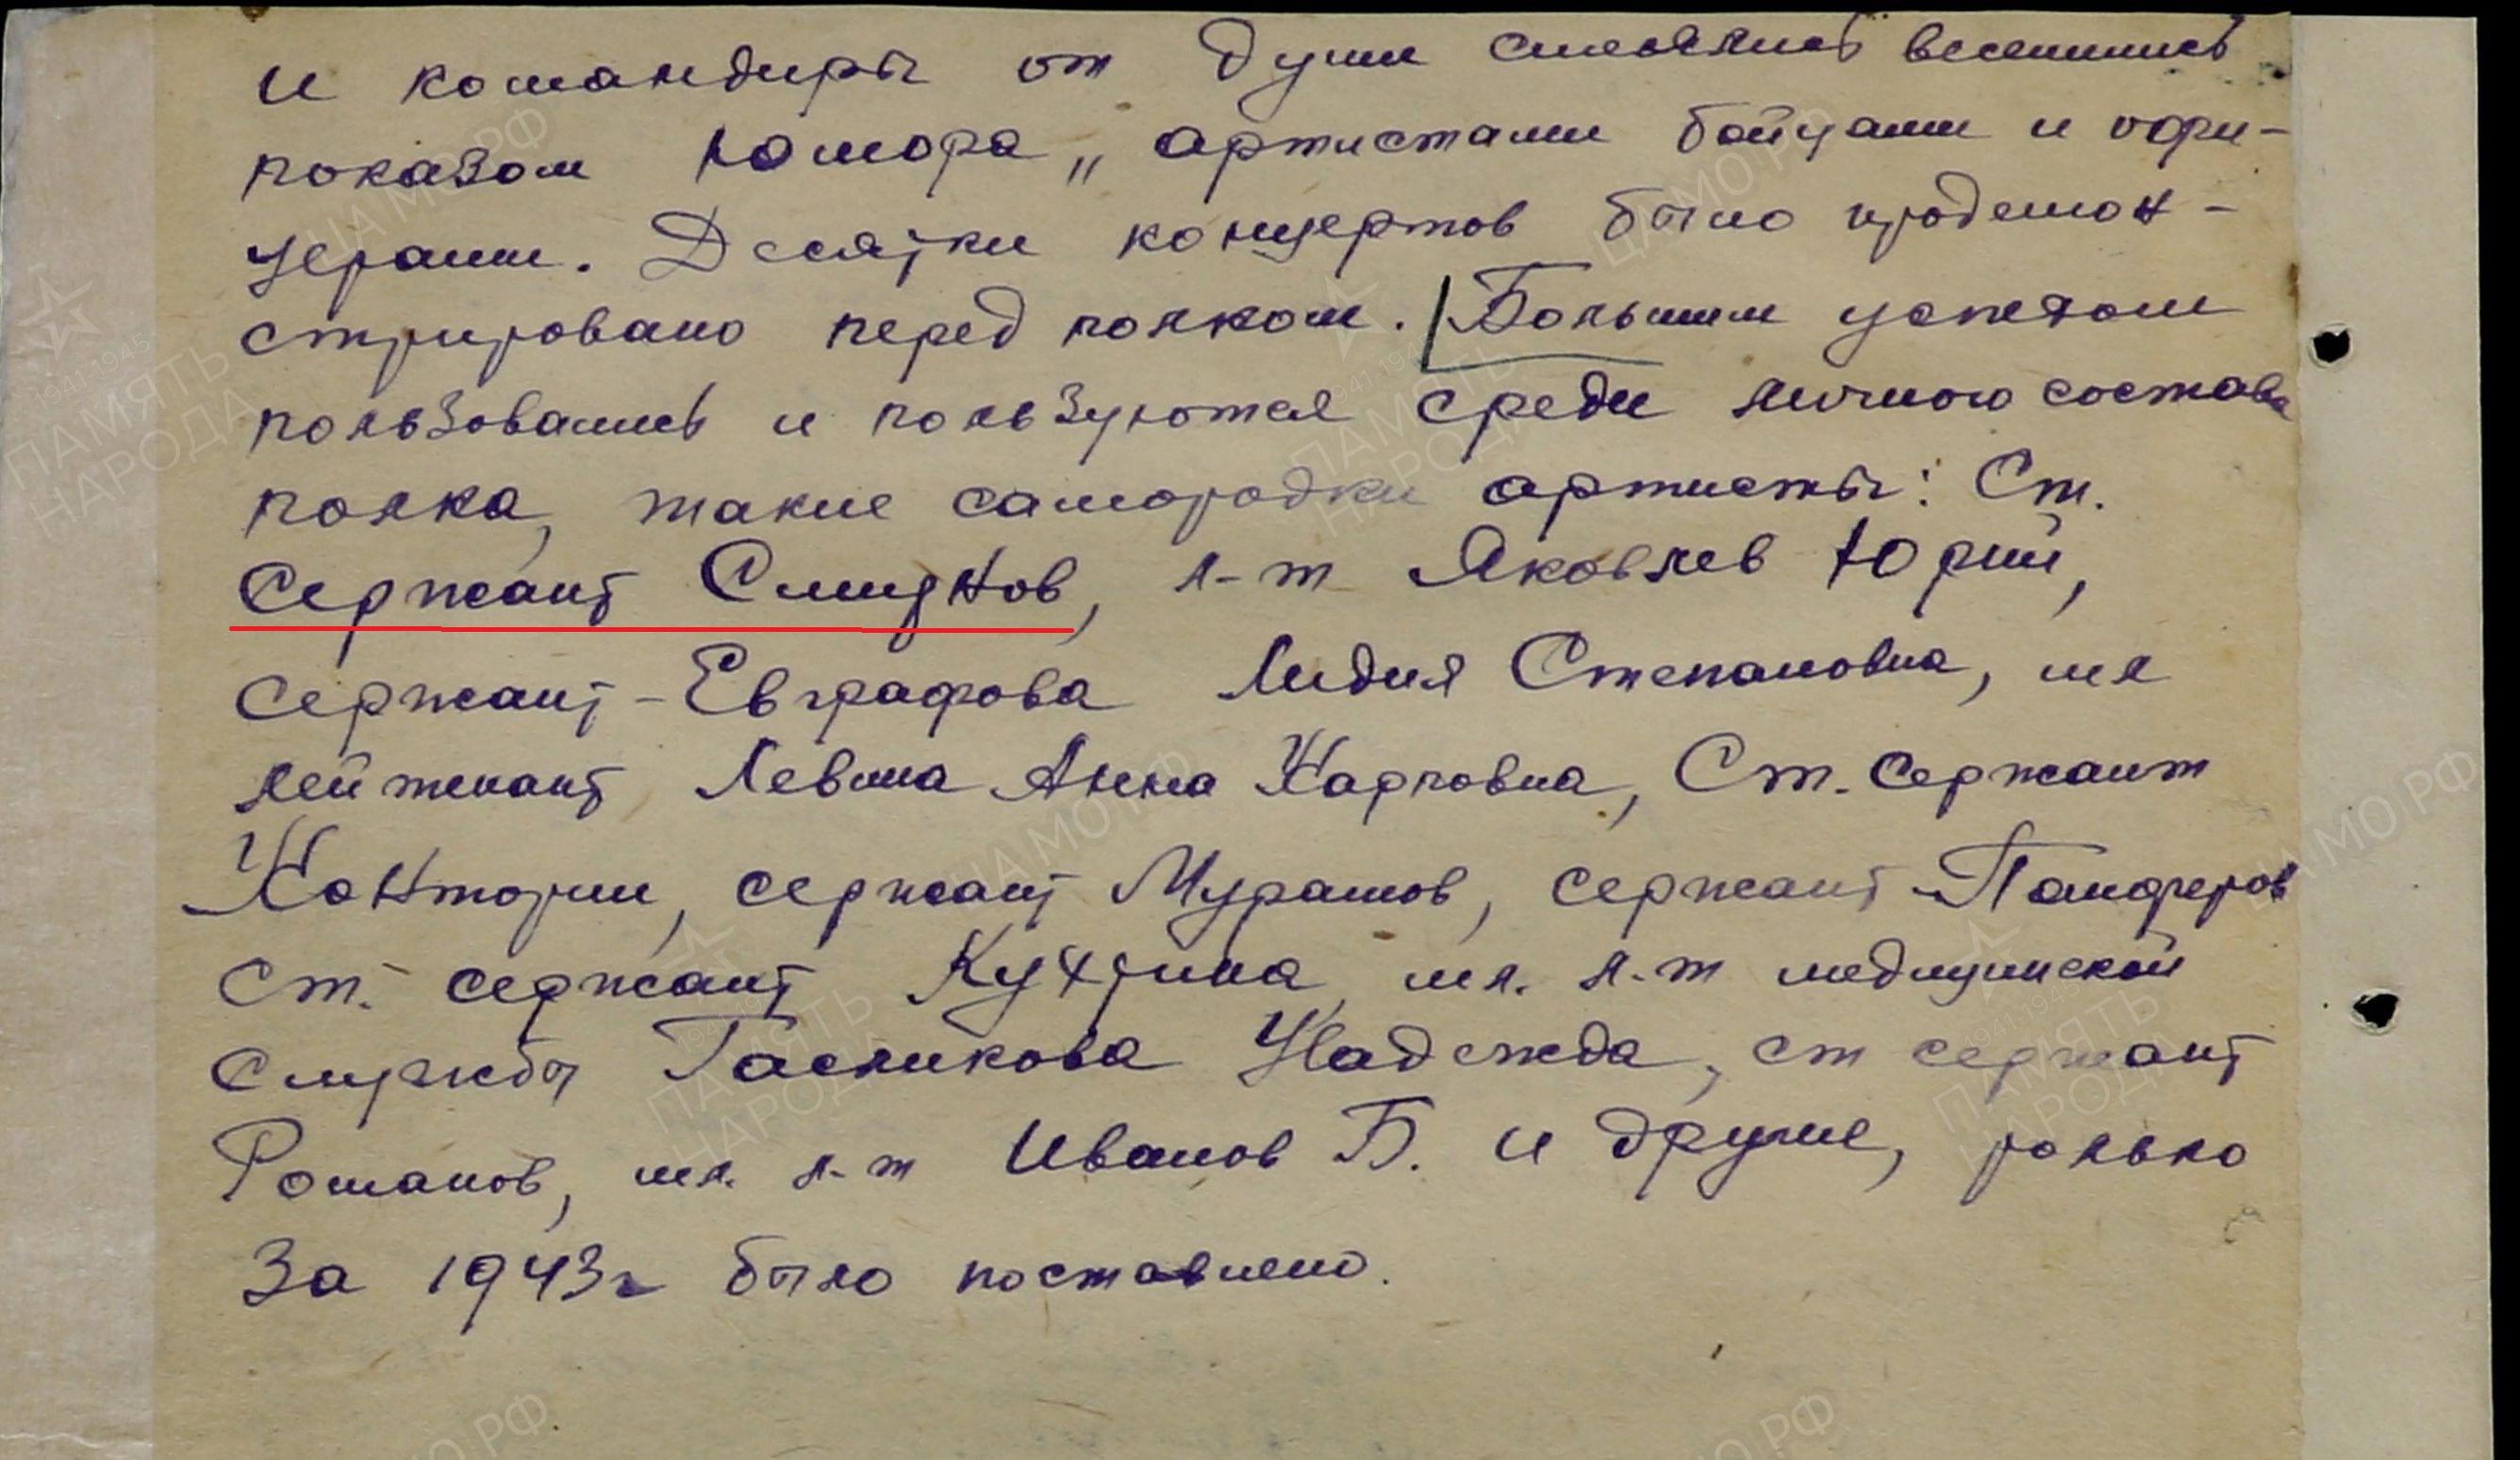 и командиры от души смеялись веселились
показом юмора „ артистами бойцами и офи-
церами. Десятки концертов было продемон-
стрировано перед полком. Большим успехом
пользовались и пользуются среди личного состава
полка, такие самородки артисты: Ст.
Сержант Смирнов, л-т Яковлев Юрий,
Сержант - Евграфова Лидия Степановна, мл
лейтенант Левина Анна Карповна, Ст. Сержант
Кантории, сержант Мурашов, сержант Панферов
Ст. сержант Кухрина, мл. л-т медицинской
службы Гасликова Надежда, ст сержант
Романов, мл. л-т Иванов Б. и другие, только
За 1943г было поставлено.
ПАМЯТЬ
НАРОДА
1941-1945
ЦАМО РФ